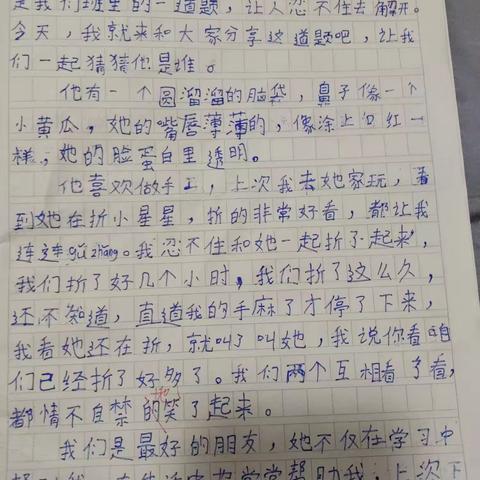 是我们班里的一道题，让人忍不住去解开。
今天，我就来和大家分享这道题吧，让我
们一起猜猜他是谁。
他有一个圆溜溜的脑袋，鼻子像一个
小黄瓜，她的嘴唇薄薄的，像涂上口红一
样，她的脸蛋白里透明。
他喜欢做手工，上次我去她家玩，看
到她在折小星星，折的非常好看，都让我
连连gǔ zhang。我忍不住和她一起折了起来，
我们折了好几个小时，我们折了这么久，
还不知道，直道我的手麻了才停了下来，
我看她还在折，就叫了叫她，我说你看咱
们已经折了好多了。我们两个互相看了看，
都情不自禁的地笑了起来。
我们是最好的朋友，她不仅在学习中
我，在生活中也常常帮助我，上次下